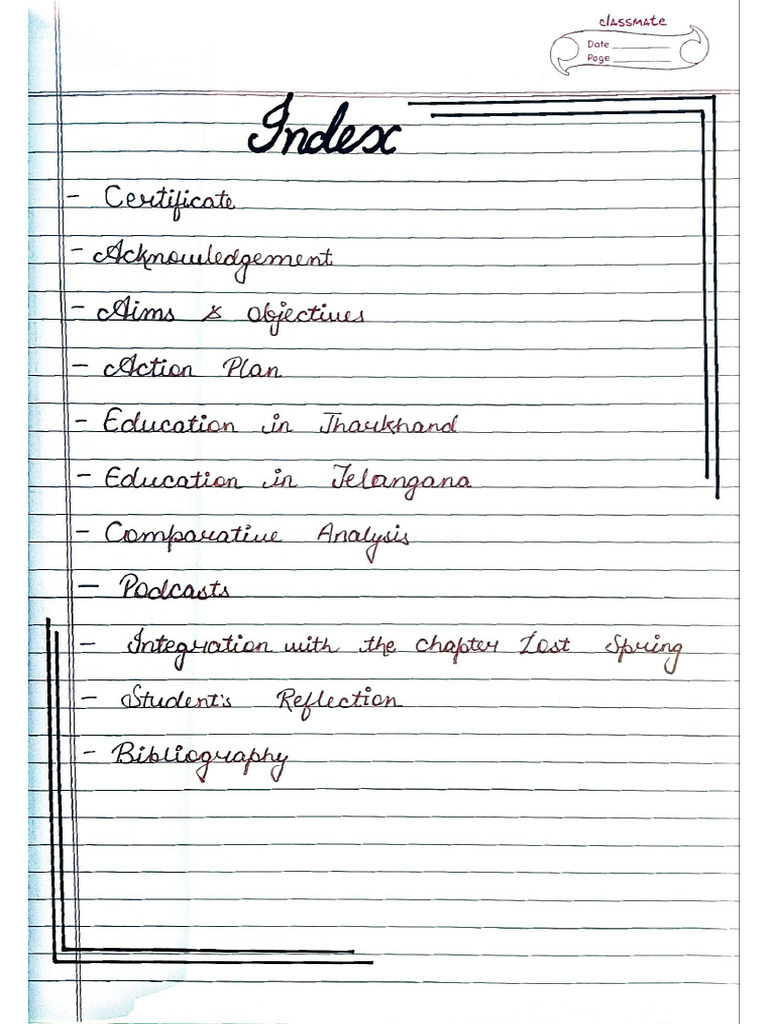 classmate
Date
Page
Index
- Certificate
- Acknowledgement
- Aims & Objectives
- Action Plan
- Education in Jharkhand
- Education in Telangana
- Comparative Analysis
- Podcasts
- Integration with the chapter Lost Spring
- Student's Reflection
- Bibliography